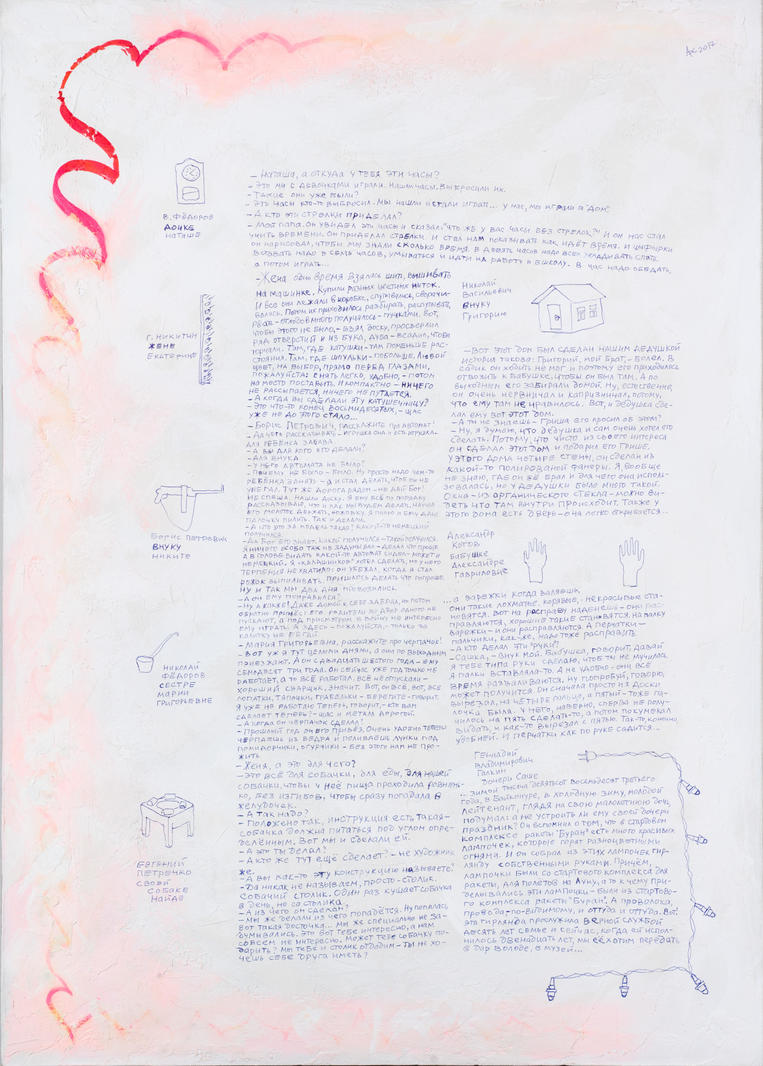 АС 2017
В. Фёдоров
дочке
Наташе
– Наташа, а откуда у тебя эти часы?
– Это мы с девочками играли. Нашли часы. Выбросили их.
– Такие они уже были?
– Эти часы кто-то выбросил. Мы нашли и стали играть... у нас, мы играли в "Дом".
– А кто эти стрелки приделал?
– Мой папа. Он увидел эти часы и сказал: "Что же у вас часы без стрелок?" И он нас стал
учить времени. Он приделал стрелки и стал нам показывать как идёт время. И цифирки
он нарисовал, чтобы мы знали сколько время. В девять часов надо всех укладывать спать.
Вставать надо в семь часов, умываться и идти на работу в школу. В час надо обедать,
а потом играть...
г. Никитин
жене
Екатерине
– Жена одно время взялась шить, вышивать
на машинке. Купили разных цветных ниток.
И все они лежали в коробке, спутывались, сворачи-
вались. Потом их приходилось разбирать, распутывать,
рвать – отходов много получалось – пучками. Вот,
чтобы этого не было, – взял доску, просверлил
ряд отверстий и из бука, дуба – всадил, чтобы
торчали. Там, где катушки – там поменьше рас-
стояния. Там, где шпульки – побольше. Любой
цвет, на выбор, прямо перед глазами,
пожалуйста: снять легко, удобно, – потом
на место поставить. И компактно – ничего
не рассыпается, ничего не путается.
– А когда вы сделали эту катушечницу?
– Это что-то конец восьмидесятых, – щас
уже не до этого стало...
Борис Петрович
внуку
Никите
– Борис Петрович, расскажите про автомат!
– Да что рассказывать – игрушка она и есть игрушка –
для ребёнка забава.
– А вы для кого его делали?
– Для внука
– У него автомата не было?
– Почему не было – было. Ну просто надо чем-то
ребёнка занять – я и стал делать, чтоб он не
убегал. Тут же дорога рядом – не дай Бог!
Не спеша. Нашли доску. Я ему всё по порядку
рассказываю, что и как мы будем делать, научил
его молоток держать, ножовку. Я пилю и ему даже
палочку пилить. Так и делали.
– А что это за модель такая? Какой-то немецкий
получился.
– Да Бог его знает. Какой получился – такой получился.
Я ничего особо так не задумывал – делал что проще.
А в голове видать какой-то автомат сидел – может и
немецкий. Я "Калашников" хотел сделать, но у него
терпения не хватило: он убежал, когда я стал
рожок выпиливать. Пришлось делать что попроще.
Ну и так мы два дня провозились
– А он ему понравился?
– Ну а как же! Даже домой к себе забрал, но потом
обратно принёс: его родители во двор одного не
пускают, а под присмотром в войну не интересно
ему играть. А здесь – пожалуйста, – только за
калитку не бегай
Николай
Фёдоров
сестре
Марии
Григорьевне
– Мария Григорьевна, расскажите про черпачок!
– Вот уж я тут целыми днями, а они по выходным
приезжают. А он с двадцать шестого года – ему
семьдесят три года. Он сейчас уже год только не
работает, а то всё работал. Всё не отпускали –
хороший сварщик, значит. Вот, он всё, вот, все
лопатки, тяпочки, грабельки – берегите – говорит.
Я уже не работаю теперь, говорит, – кто вам
сделает теперь? – щас и металл дорогой.
– А когда он черпачок сделал?
– Прошлый год он его привёз. Очень удобно теперь
черпаешь из ведра и поливаешь лунки под
помидорчики, огурчики – без этого нам не про-
жить
Евгений
Петренко
своей
собаке
Найде
– Женя, а это для чего?
– Это всё для собачки, для еды, для нашей
собачки, чтобы у неё пища проходила ровнень-
ко, без изгибов, чтобы сразу попадала в
желудочек.
– А так надо?
– Положено так, инструкция есть такая –
собачка должна питаться под углом опре-
делённым. Вот мы и сделали ей.
– А это ты делал?
– А кто же тут ещё сделает? – не художник
же.
– А вы как-то эту конструкцию называете?
– Да никак не называем, просто – столик.
Собачий столик. Один раз кушает собачка
в день, но со столика.
– А из чего он сделан?
– Мы же делали из чего попадётся. Ну попалась
вот такая досточка... мы же специально не за-
думывались. Это вот тебе интересно, а нам
совсем не интересно. Может тебе собачку по-
дарить? Мы тебе и столик отдадим – ты не хо-
чешь себе друга иметь?
Николай
Васильевич
внуку
Григорию
– Вот этот дом был сделан нашим дедушкой
История такова: Григорий, мой брат, – болел. В
садик он ходить не мог и поэтому его приходилось
отвозить к бабушке, чтобы он был там, а по
выходным его забирали домой. Ну, естественно,
он очень нервничал и капризничал, потому,
что ему там не нравилось. Вот, и дедушка сде-
лал ему вот этот дом.
– А ты не знаешь – Гриша его просил об этом?
– Ну, я думаю, что дедушка и сам очень хотел его
сделать. Потому, что чисто из своего интереса
он сделал этот дом и подарил его Грише.
У этого дома четыре стены, он сделан из
какой-то полированой фанеры. Я вообще
не знаю, где он её брал и для чего она исполь-
зовалась, но у дедушки было много такой.
Окна – из органического стекла – можно ви-
деть что там внутри происходит. Также у
этого дома есть дверь – она легко открывается...
Александр
Котов
бабушке
Александре
Гавриловне
... а варежки когда валяешь
они такие лохматые, корявые, некрасивые ста-
новятся. Вот на расправу наденешь – они рас-
правляются, хорошие такие становятся. На палку
варежки – и они расправляются. А перчатки –
пальчики, как же, надо тоже расправить
– А кто делал эти руки?
– Сашка, – внук мой. Бабушка, говорит, давай
я тебе типа руки сделаю, чтоб ты не мучилась
Я палки вставляла-то. А не удобно – они всё
время разваливаются, ну попробуй, говорю,
может получится. Он сначала просто из доски
вырезал, на четыре пальца, а пятый – тоже па-
лочка была. У него, наверно, сперва не полу-
чилось на пять сделать-то, а потом покумекал
видать, и как-то вырезал с пятью. Так-то, конечно,
удобней: и перчатки как по руке садятся...
Геннадий
Владимирович
Галкин
дочери Саше
... Зимой тысяча девятьсот восемьдесят третьего
года, в Байконуре, в холодную зиму, молодой
лейтенант, глядя на свою малолетнюю дочь,
подумал: а не устроить ли ему своей дочери
праздник? Он вспомнил о том, что в стартовом
комплексе ракеты "Буран" есть много красивых
лампочек, которые горят разноцветными
огнями. И он собрал из этих лампочек гир-
лянду собственными руками. Причём,
лампочки были со стартового комплекса для
ракеты, для полётов на Луну, а то к чему при-
делывались эти лампочки – были из стартово-
го комплекса ракеты "Буран". А проволока,
провода – по-видимому, и оттуда и оттуда. Вот.
Эта гирлянда прослужила верной службой
десять лет семье и сейчас, когда ей испол-
нилось двенадцать лет, мы её хотим передать
в дар Володе, в музей...